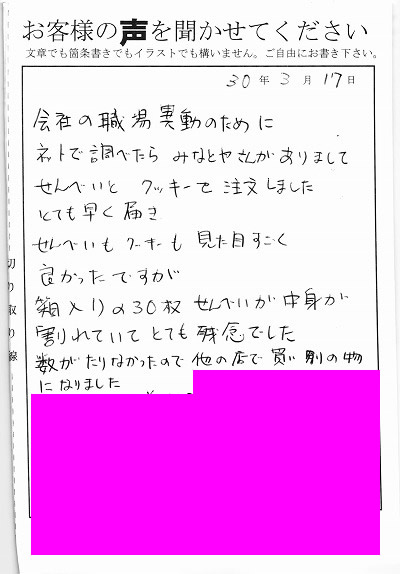 お客様の声を聞かせてください
文章でも箇条書きでもイラストでも構いません。ご自由にお書き下さい。
30年3月17日
会社の職場異動のために
ネットで調べたら みなとやさんがありまして
せんべいと クッキーで 注文しました
とても早く届き
せんべいも クッキーも 見た目すごく
良かったですが
箱入りの30枚 せんべいが 中身が
割れていて とても 残念でした
数がたりなかったので 他の店で 買い 別の物
になりました
切り取り線